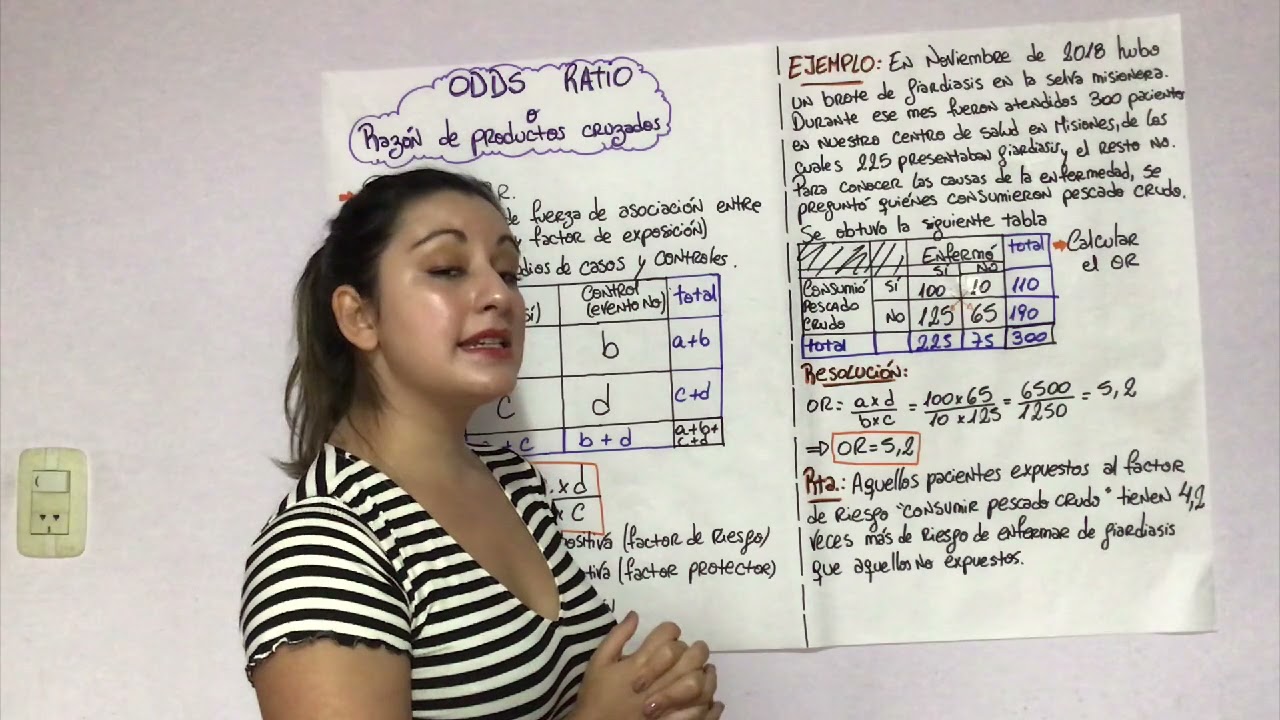 ODDS RATIO
o
Razón de productos cruzados
OR.
de fuerza de asociación entre
y factor de exposición)
de casos y controles.
CONTROL
(evento NO)
total
b
a+b
c
d
c+d
+c
b+d
a+b+
c+d
.xd
x c
(factor de Riesgo)
(factor protector)
EJEMPLO: En Noviembre de 2018 hubo
un brote de giardiasis en la selva misionera.
Durante ese mes fueron atendidos 300 pacientes
en nuestro centro de salud en Misiones, de los
cuales 225 presentaban giardiasis y el resto no.
Para conocer las causas de la enfermedad, se
preguntó quiénes consumieron pescado crudo.
Se obtuvo la siguiente tabla
Enfermó
total
SÍ
NO
Consumió
pescado
crudo
SÍ
100
10
110
NO
125
65
190
total
225
75
300
Calcular
el OR
Resolución:
OR = axd/bxc = 100x65/10x125 = 6500/1250 = 5,2
⇒ OR = 5,2
Rta.: Aquellos pacientes expuestos al factor
de riesgo "consumir pescado crudo" tienen 4,2
veces más de riesgo de enfermar de giardiasis
que aquellos no expuestos.